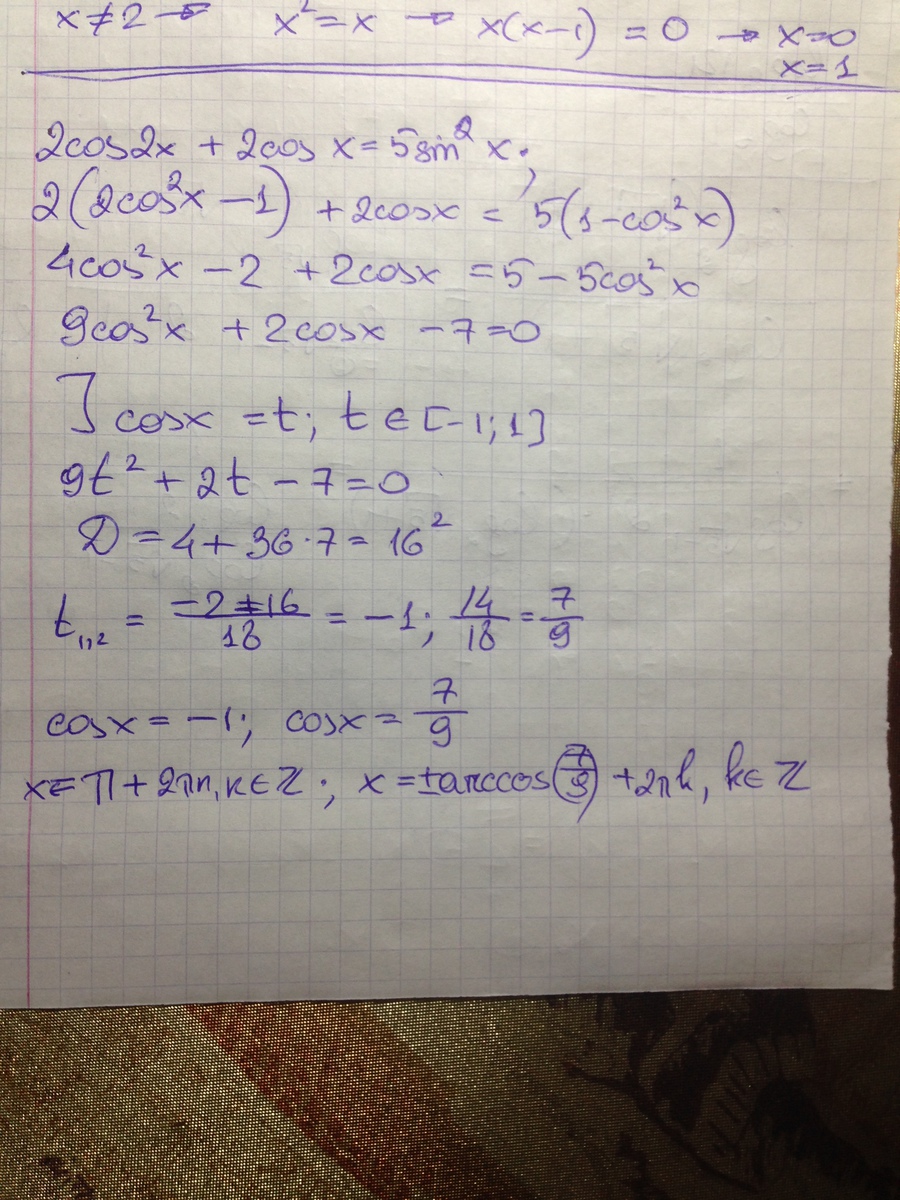 x ≠ 2 → x² = x → x(x-1) = 0 → x = 0
x = 1
2cos2x + 2cos x = 5sin² x;
2(2cos²x - 1) + 2cosx = 5(1 - cos²x)
4cos²x - 2 + 2cosx = 5 - 5cos²x
9cos²x + 2cosx - 7 = 0
] cosx = t; t ∈ [-1; 1]
9t² + 2t - 7 = 0
D = 4 + 36·7 = 16²
t₁,₂ = (-2 ± 16)/18 = -1; 14/18 = 7/9
cosx = -1; cosx = 7/9
x = π + 2πn, k ∈ Z; x = ±arccos(7/9) + 2πk, k ∈ Z